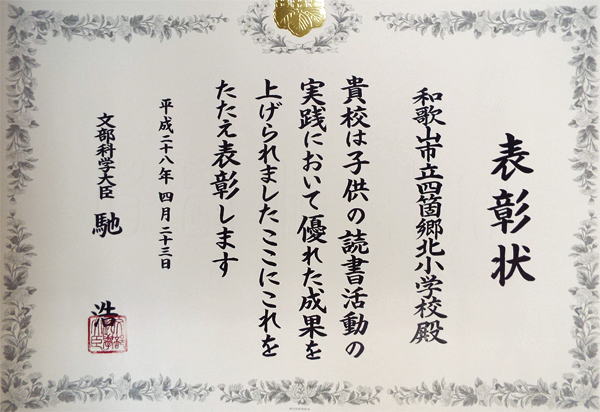 表彰状
和歌山市立四箇郷北小学校殿
貴校は子供の読書活動の
実践において優れた成果を
上げられましたここにこれを
たたえ表彰します
平成二十八年四月二十三日
文部科学大臣 馳 浩